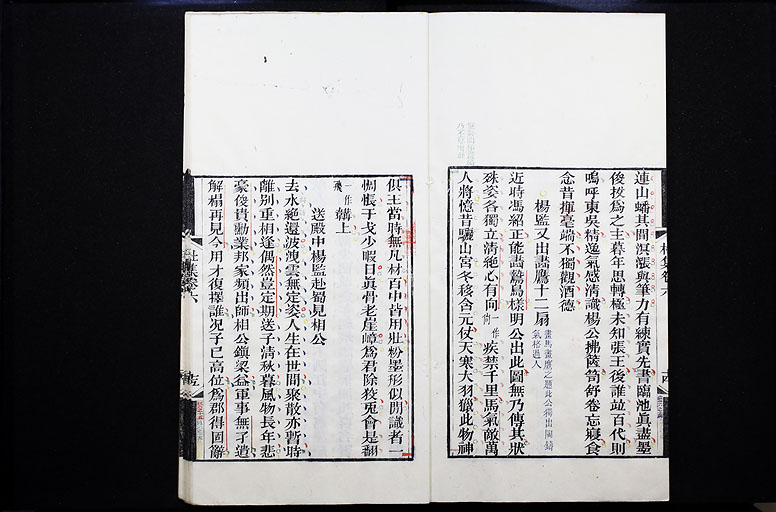 連山蟠其間溟漲與筆力有練實先書臨池眞盡墨
俊拔爲之主暮年思轉極未知張王後誰並百代則
嗚呼東吳精逸氣感清識楊公拂篋笥舒卷忘寢食
念昔揮毫端不獨觀酒德
楊監又出畫鷹十二扇
近時馮紹正能畫鷙鳥樣明公出此圖無乃傳其狀
殊姿各獨立清絶心有向一作尚疾禁千里馬氣敵萬
人將憶昔驪山宮冬移含元仗天寒大羽獵此物神
俱王當時無凡材百中皆用壯粉墨形似間識者一
惆悵干戈少暇日眞骨老崖嶂爲君除狡兎會是翻
飛一作韝上
送殿中楊監赴蜀見相公
去水絶還波洩雲無定姿人生在世間聚散亦暫時
離別重相逢偶然豈定期送子清秋暮風物長年悲
豪俊貴勳業邦家頻出師相公鎭梁益軍事無孑遺
解榻再見今用才復擇誰况子已高位爲郡得固辭